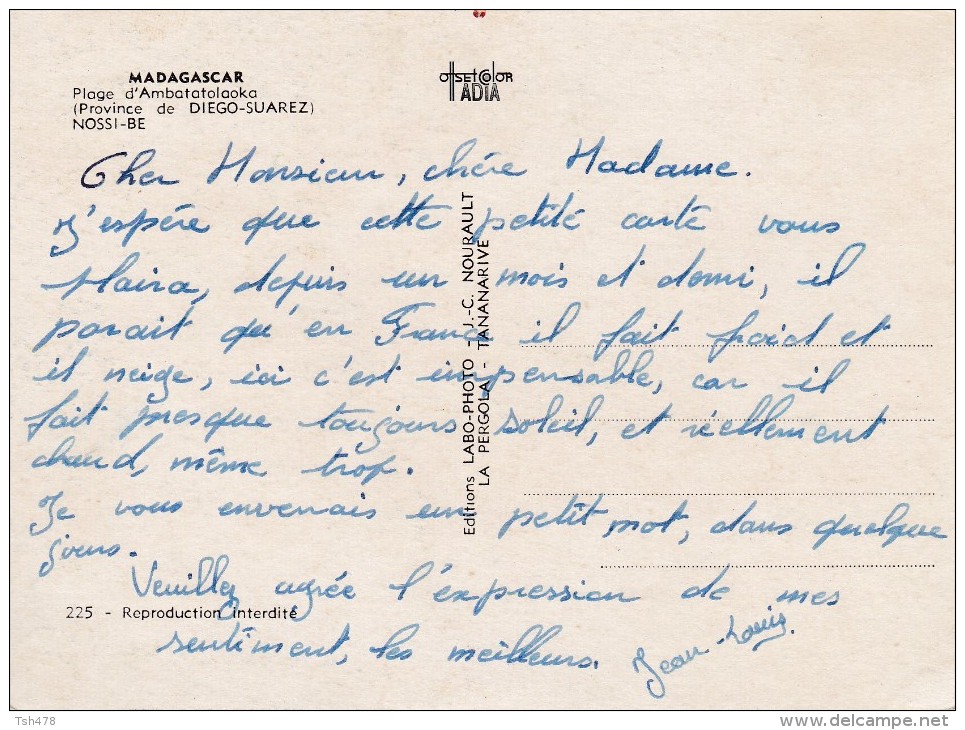 MADAGASCAR
Plage d'Ambatatolaoka
(Province de DIEGO-SUAREZ)
NOSSI-BE
OffSEtColoR
TADIA
Cher Monsieur, chère Madame.
J'espère que cette petite carte vous
plaira, depuis un mois et demi, il
parait qu'en France il fait froid et
il neige, ici c'est impensable, car il
fait presque toujours soleil, et réellement
chaud, même trop.
Je vous enverrais un petit mot, dans quelque
jours.
Veuillez agrée l'expression de mes
sentiment, les meilleurs. Jean-Louis.
Editions LABO-PHOTO - J.-C. NOURAULT
LA PERGOLA - TANANARIVE
225 - Reproduction interdite
Tsh478
delcampe.net